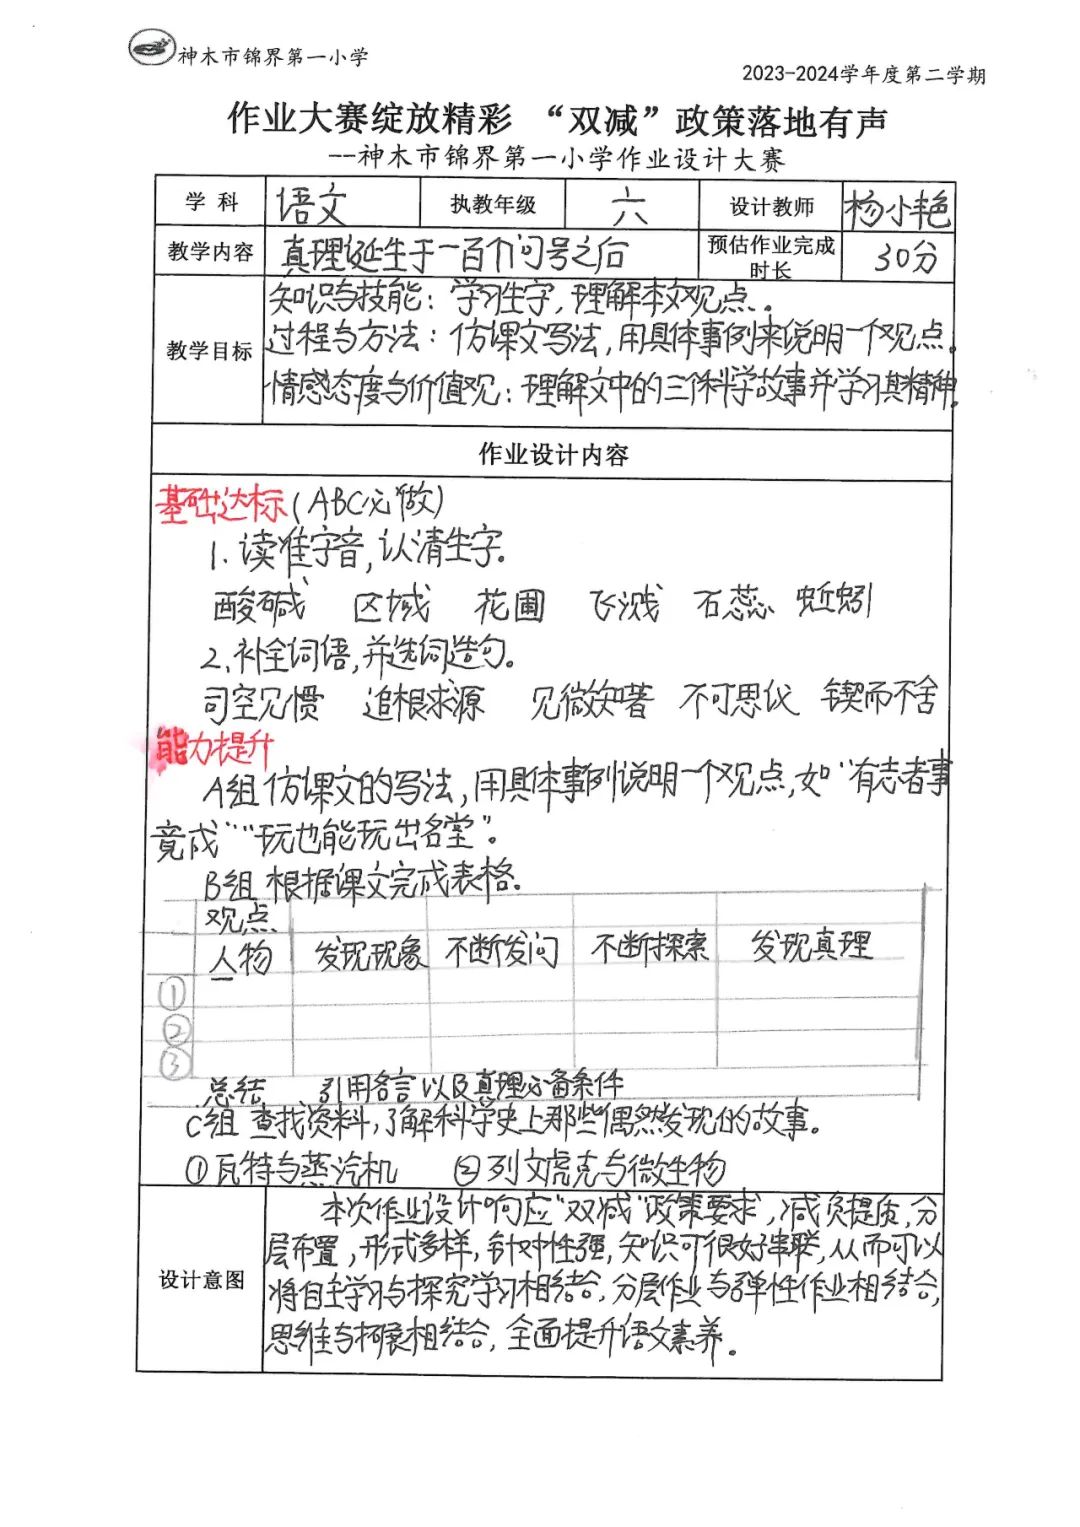 神木市锦界第一小学
2023-2024学年度第二学期
作业大赛绽放精彩 “双减”政策落地有声
--神木市锦界第一小学作业设计大赛
学 科 语文 执教年级 六 设计教师 杨小艳
教学内容 真理诞生于一百个问号之后 预估作业完成时长 30分
教学目标
知识与技能：学习生字，理解本文观点。
过程与方法：仿课文写法，用具体事例来说明一个观点。
情感态度与价值观：理解文中的三个科学故事并学习其精神。
作业设计内容
基础达标（ABC必做）
1.读准字音，认清生字.
酸碱 区域 花圃 飞溅 石蕊 蚯蚓
2.补全词语，并选词造句。
司空见惯 追根求源 见微知著 不可思议 锲而不舍
能力提升
A组 仿课文的写法，用具体事例说明一个观点，如“有志者事
竟成”“玩也能玩出名堂”。
B组 根据课文完成表格.
观点
人物 发现现象 不断发问 不断探索 发现真理
①
②
③
总结 引用名言以及真理必备条件
C组 查找资料，了解科学史上那些偶然发现的故事。
①瓦特与蒸汽机 ②列文虎克与微生物
设计意图
本次作业设计响应“双减”政策要求，减负提质，分
层布置，形式多样，针对性强，知识可很好串联，从而可以
将自主学习与探究学习相结合，分层作业与弹性作业相结合，
思维与拓展相结合，全面提升语文素养。